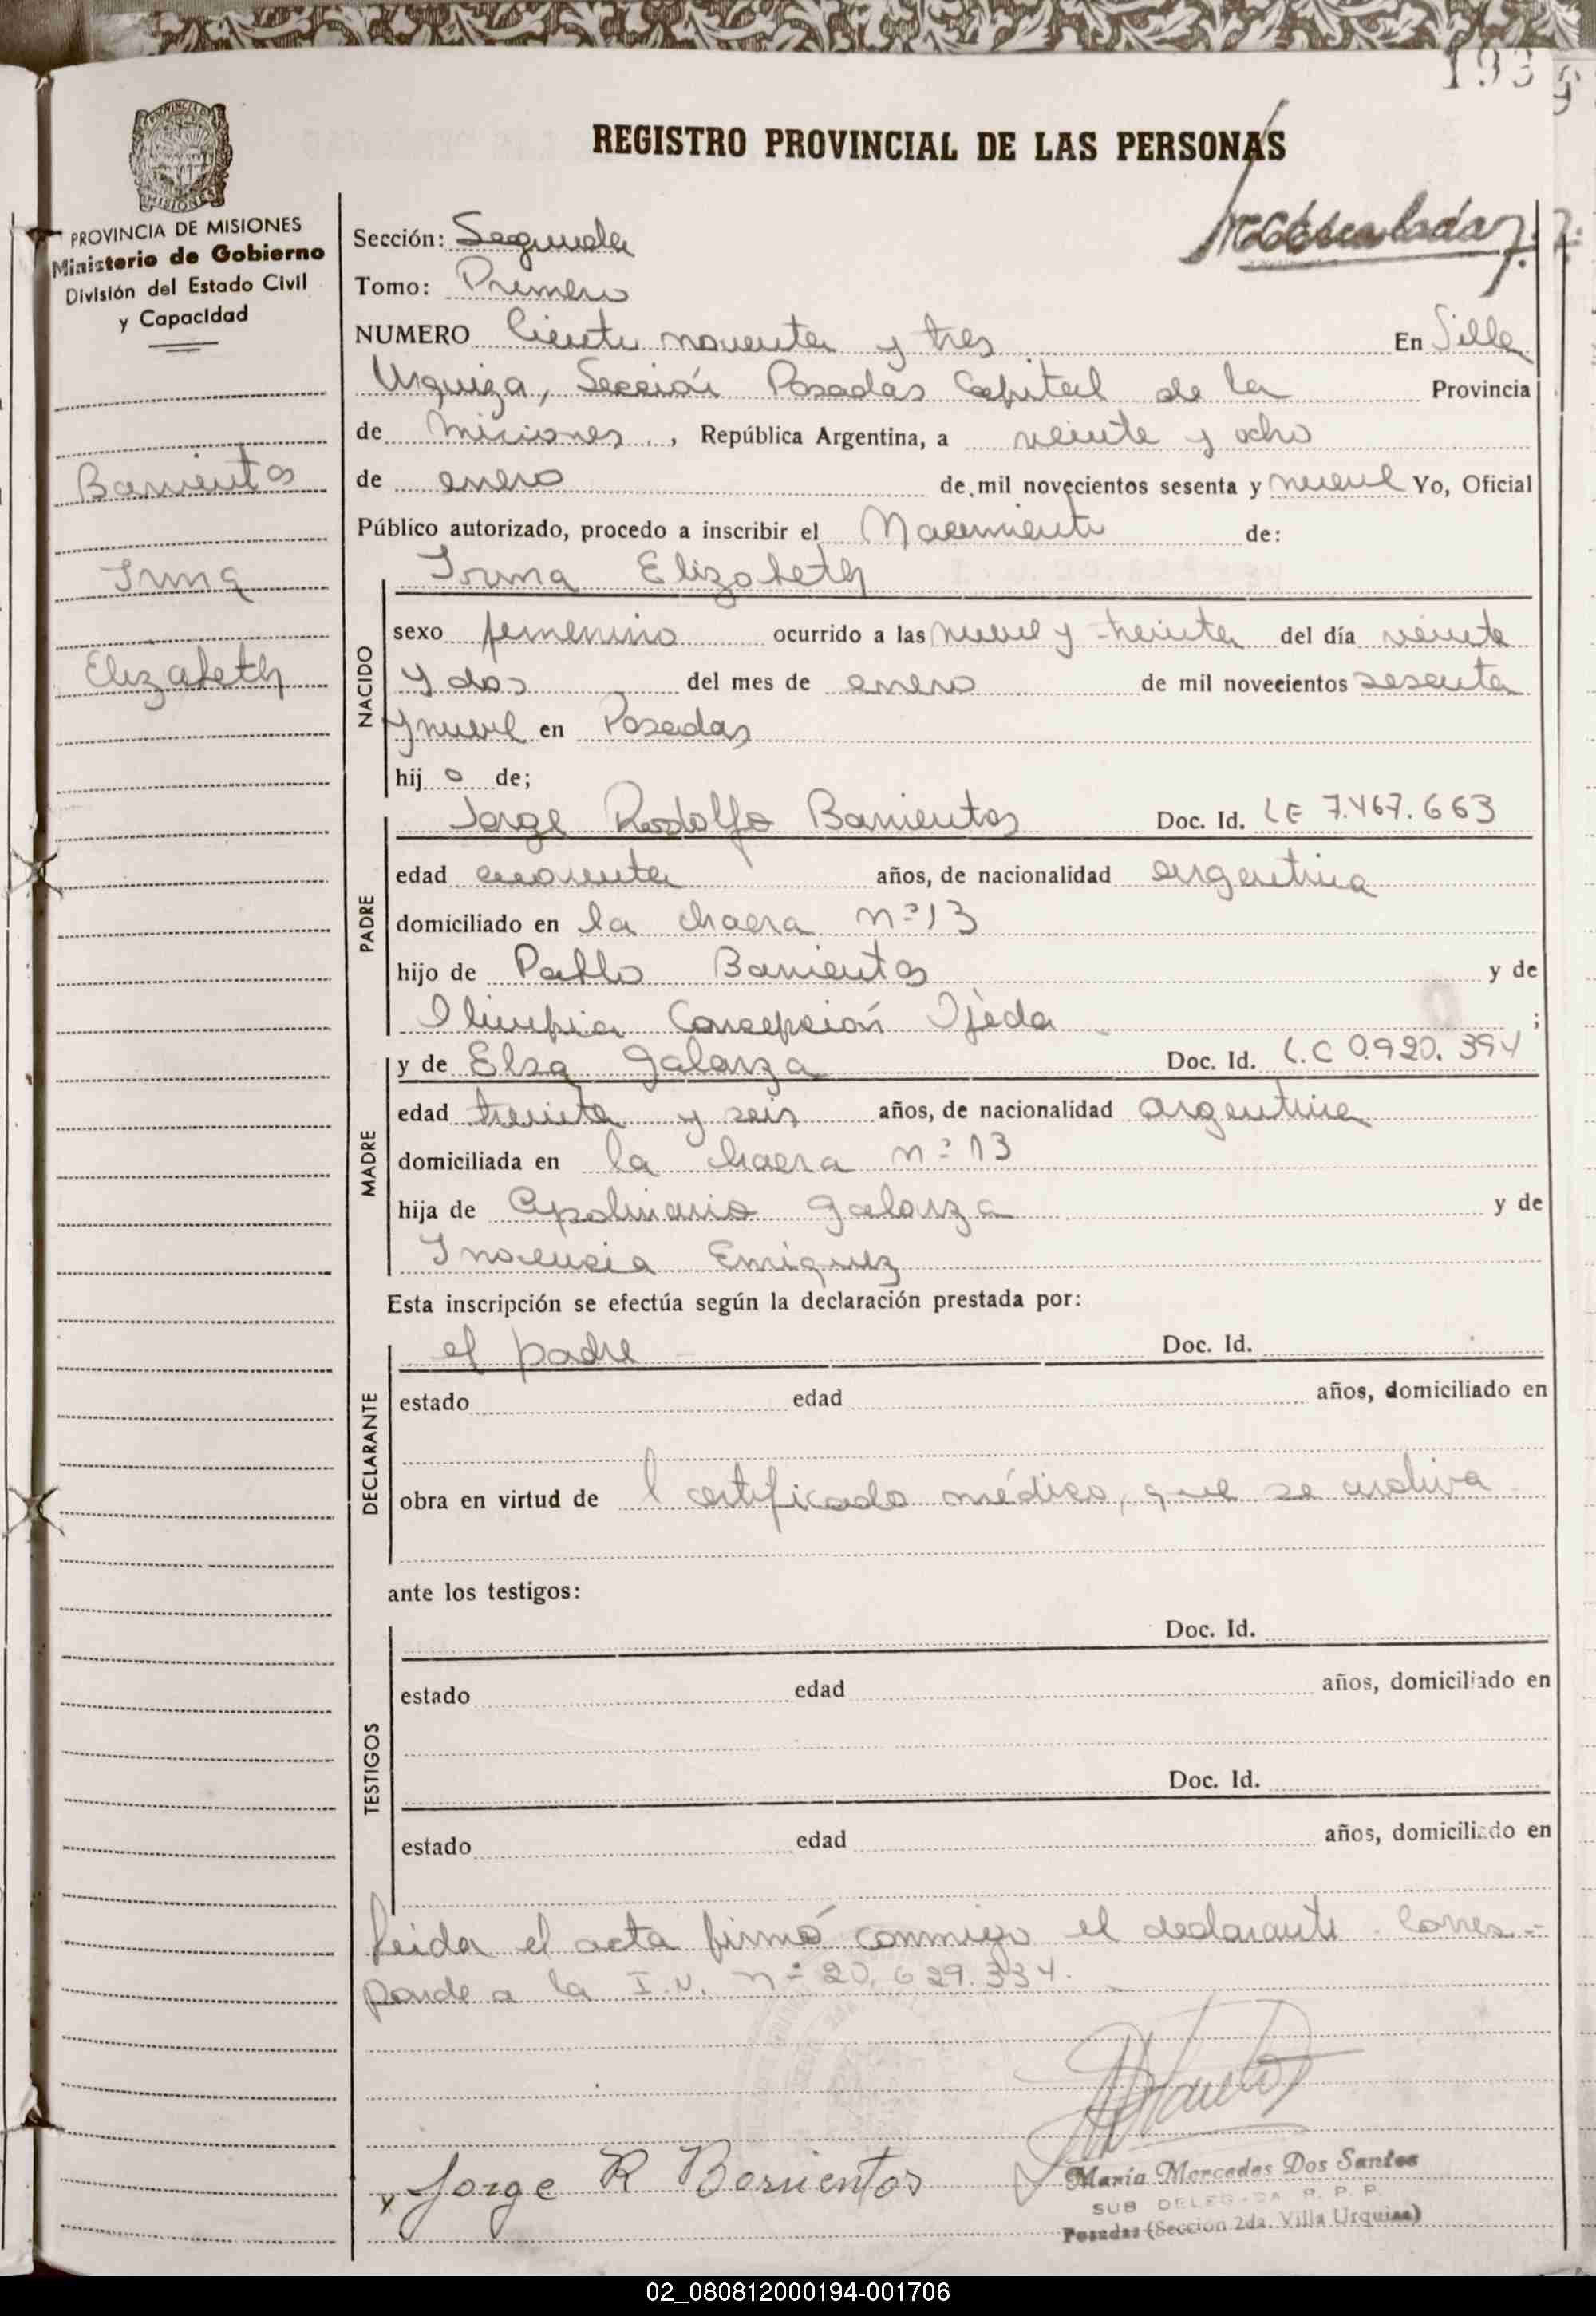 193
REGISTRO PROVINCIAL DE LAS PERSONAS
PROVINCIA DE MISIONES
PROVINCIA DE MISIONES
Ministerio de Gobierno
División del Estado Civil
y Capacidad
Barrientos
Irma
Elizabeth
Sección: Segunda
Tomo: Primero
NUMERO Ciento noventa y tres En Villa
Urquiza, Sección Posadas Capital de la Provincia
de Misiones, República Argentina, a veinte y ocho
de enero de mil novecientos sesenta y nueve Yo, Oficial
Público autorizado, procedo a inscribir el Nacimiento de:
NACIDO
Irma Elizabeth
sexo femenino ocurrido a las nueve y treinta del día veinte
y dos del mes de enero de mil novecientos sesenta
y nueve en Posadas
hij a de;
PADRE
Jorge Rodolfo Barrientos Doc. Id. LE 7.467.663
edad cuarenta años, de nacionalidad argentina
domiciliado en la chacra nº 13
hijo de Pablo Barrientos y de
Olimpia Concepción Ojeda ;
MADRE
y de Elsa Galarza Doc. Id. L.C 0.920.394
edad treinta y seis años, de nacionalidad argentina
domiciliada en la chacra nº 13
hija de Apolinario Galarza y de
Inocencia Enriquez
Esta inscripción se efectúa según la declaración prestada por:
DECLARANTE
el padre Doc. Id.
estado edad años, domiciliado en
obra en virtud de l certificado médico, que se archiva
ante los testigos:
TESTIGOS
Doc. Id.
estado edad años, domiciliado en
Doc. Id.
estado edad años, domiciliado en
Leida el acta firmó conmigo el declarante. Corres=
ponde a la I.N. nº 20.629.334.
Jorge R Barrientos
María Mercedes Dos Santos
SUB DELEGADA R. P. P.
Posadas (Sección 2da. Villa Urquiza)
02_080812000194-001706